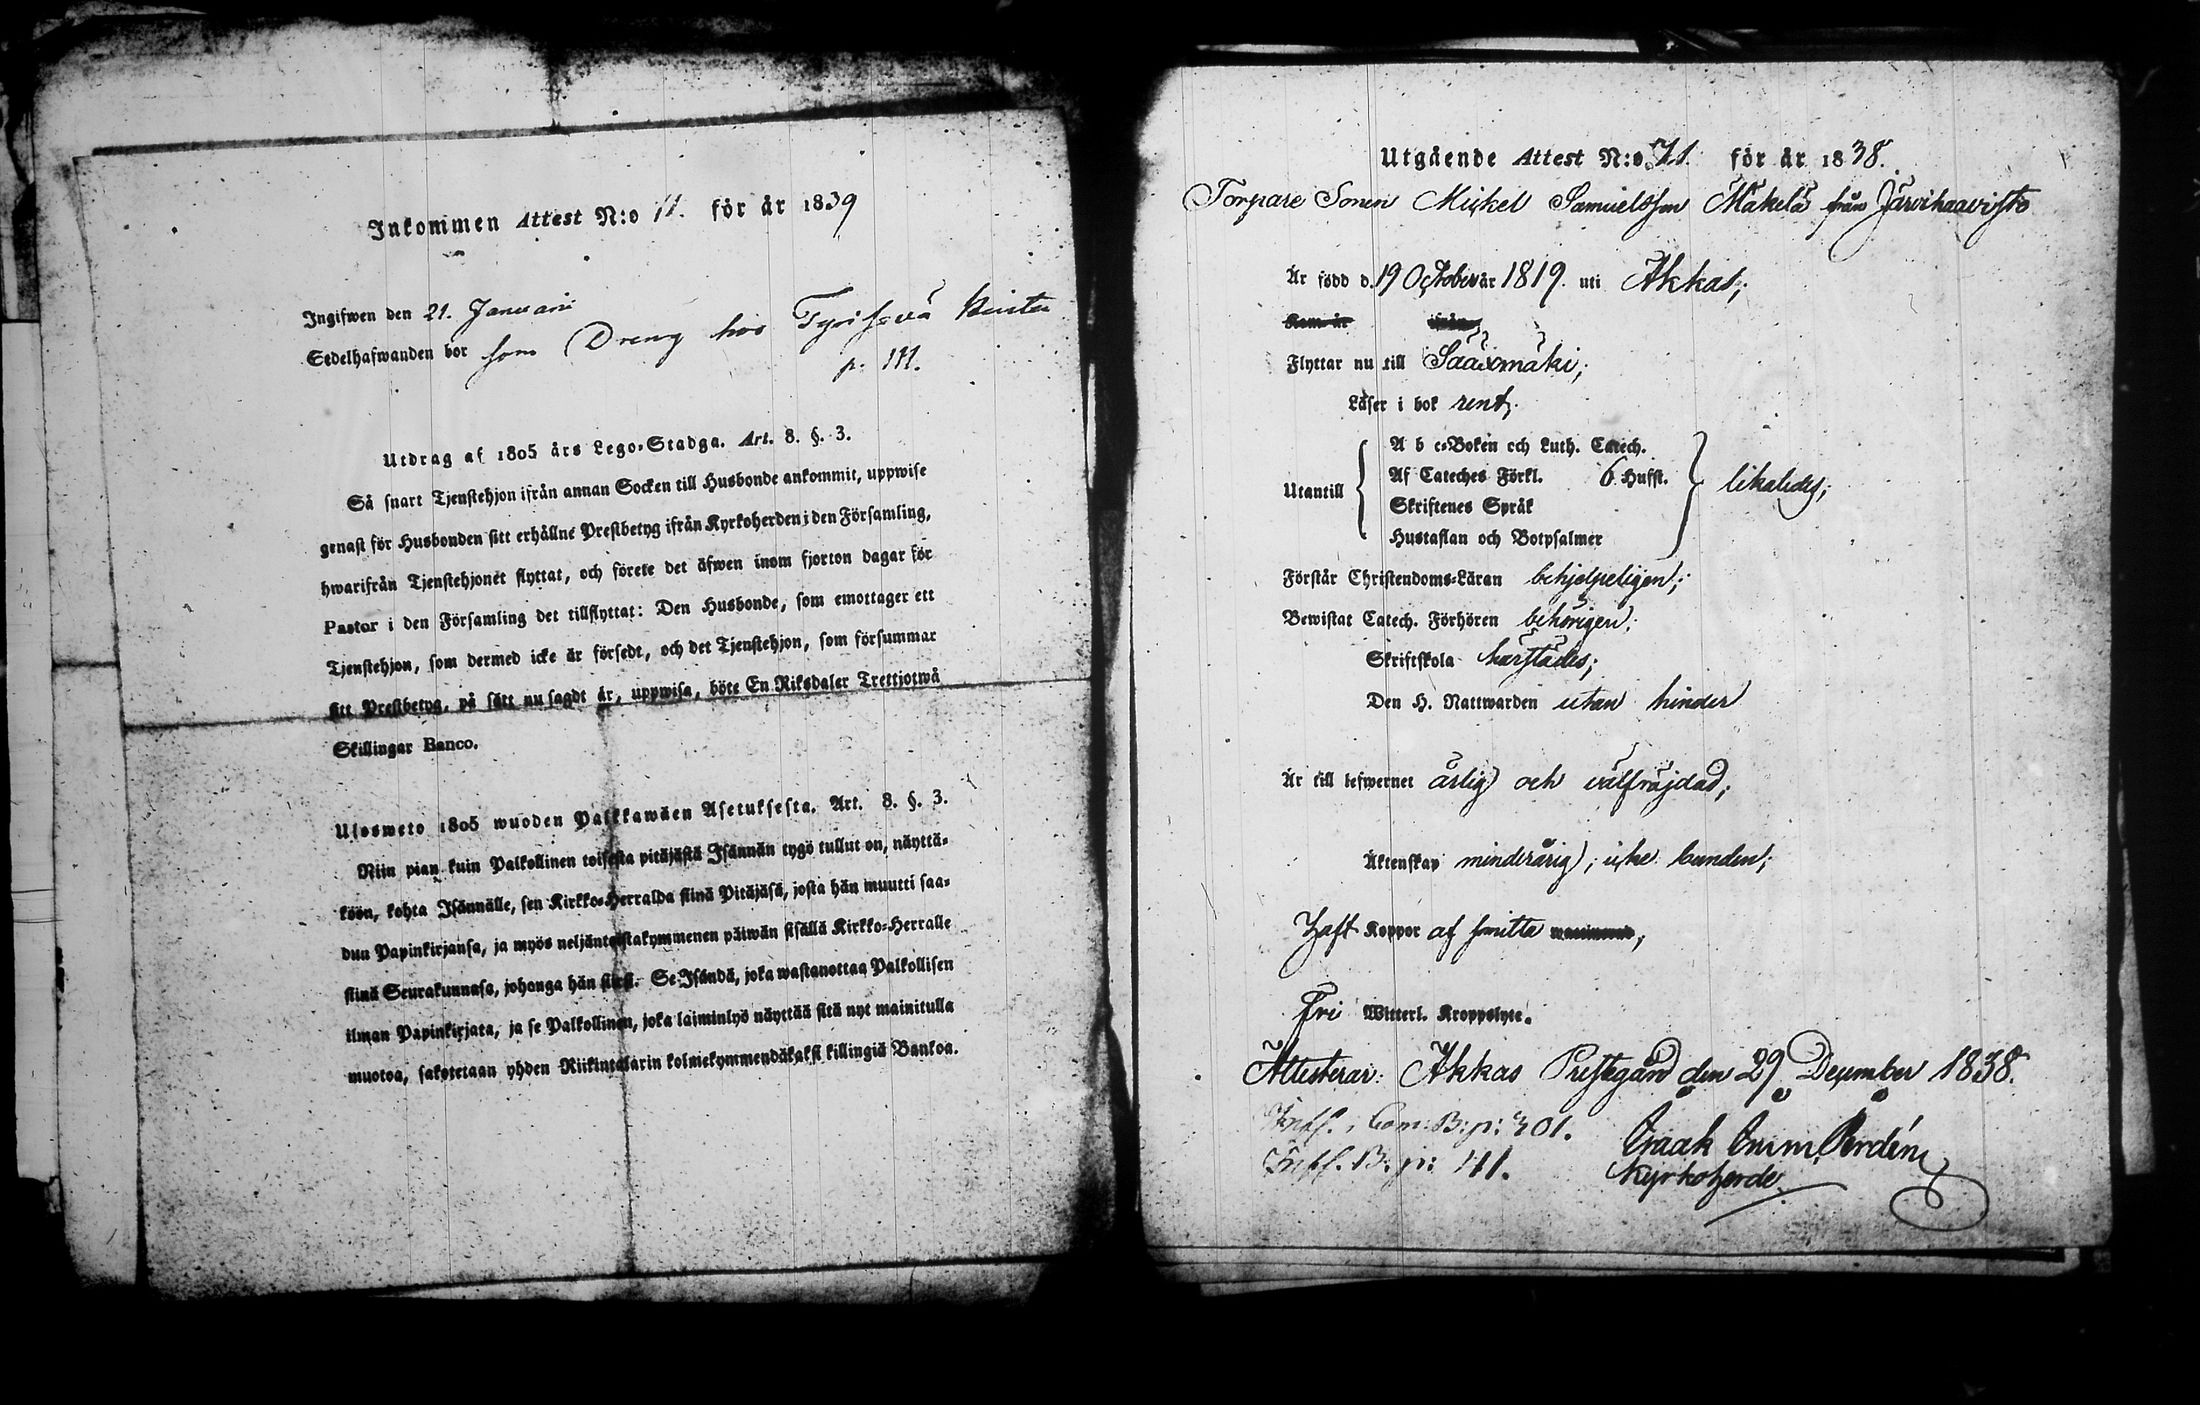 Inkommen Attest N:o 11. för år 1839
Ingifwen den 21. Januari
Sedelhafwanden bor som Dreng hos Tyrisevä
p. 111.
Utdrag af 1805 års Lego-Stadga. Art. 8. §. 3.
Så snart Tjenstehjon ifrån annan Socken till Husbonde ankommit, uppwise
genast för Husbonden sitt erhållne Prestbetyg ifrån Kyrkoherden i den Församling,
hwarifrån Tjenstehjonet flyttat, och förete det äfwen inom fjorton dagar för
Pastor i den Församling det tillflyttat: Den Husbonde, som emottager ett
Tjenstehjon, som dermed icke är försedt, och det Tjenstehjon, som försummar
sitt Prestbetyg, på sätt nu sagdt är, uppwisa, böte En Riksdaler Trettjotwå
Skillingar Banco.
Ulosweto 1805 wuoden Palkkawäen Asetuksesta. Art. 8. §. 3.
Niin pian kuin Palkollinen toisesta pitäjästä Isännän tygö tullut on, näyttä-
köön, kohta Isännälle, sen Kirkko-Herralda siinä Pitäjäsä, josta hän muutti saa-
dun Papinkirjansa, ja myös neljäntoistakymmenen päiwän sisällä Kirkko-Herralle
siinä Seurakunnasa, johonga hän siirsi. Se Isändä, joka wastanottaa Palkollisen
ilman Papinkirjata, ja se Palkollinen, joka laiminlyö näyttää sitä nyt mainitulla
muotoa, sakotetaan yhden Riikintalarin kolmekymmendäkaksi killingiä Bankoa.
Utgående Attest N:o 71. för år 1838.
Torpare Sonen Mickel Samuelsson Mäkelä från Järvihaavisto
Är född d. 19 October år 1819. uti Akkas;
Kom år ifrån
Flyttar nu till Sääxmäki;
Läser i bok rent;
A b c-Boken och Luth. Catech.
Af Cateches Förkl. 6 Hufst.
Utantill likaledes;
Skriftenes Språk
Hustaflan och Botpsalmer
Förstår Christendoms-Läran behjelpeligen;
Bewistat Catech. Förhören behörigen;
Skriftskola härstädes;
Den H. Nattwarden utan hinder
Är till lefwernet ärlig och välfräjdad;
Äktenskap minderårig; icke bunden;
Haft Koppor af smitta
Fri Witterl. Kroppslyte.
Attesterar: Akkas Prestegård den 29 December 1838.
Com: B: p: 301.
B. p: 41.
Kyrkoherde.